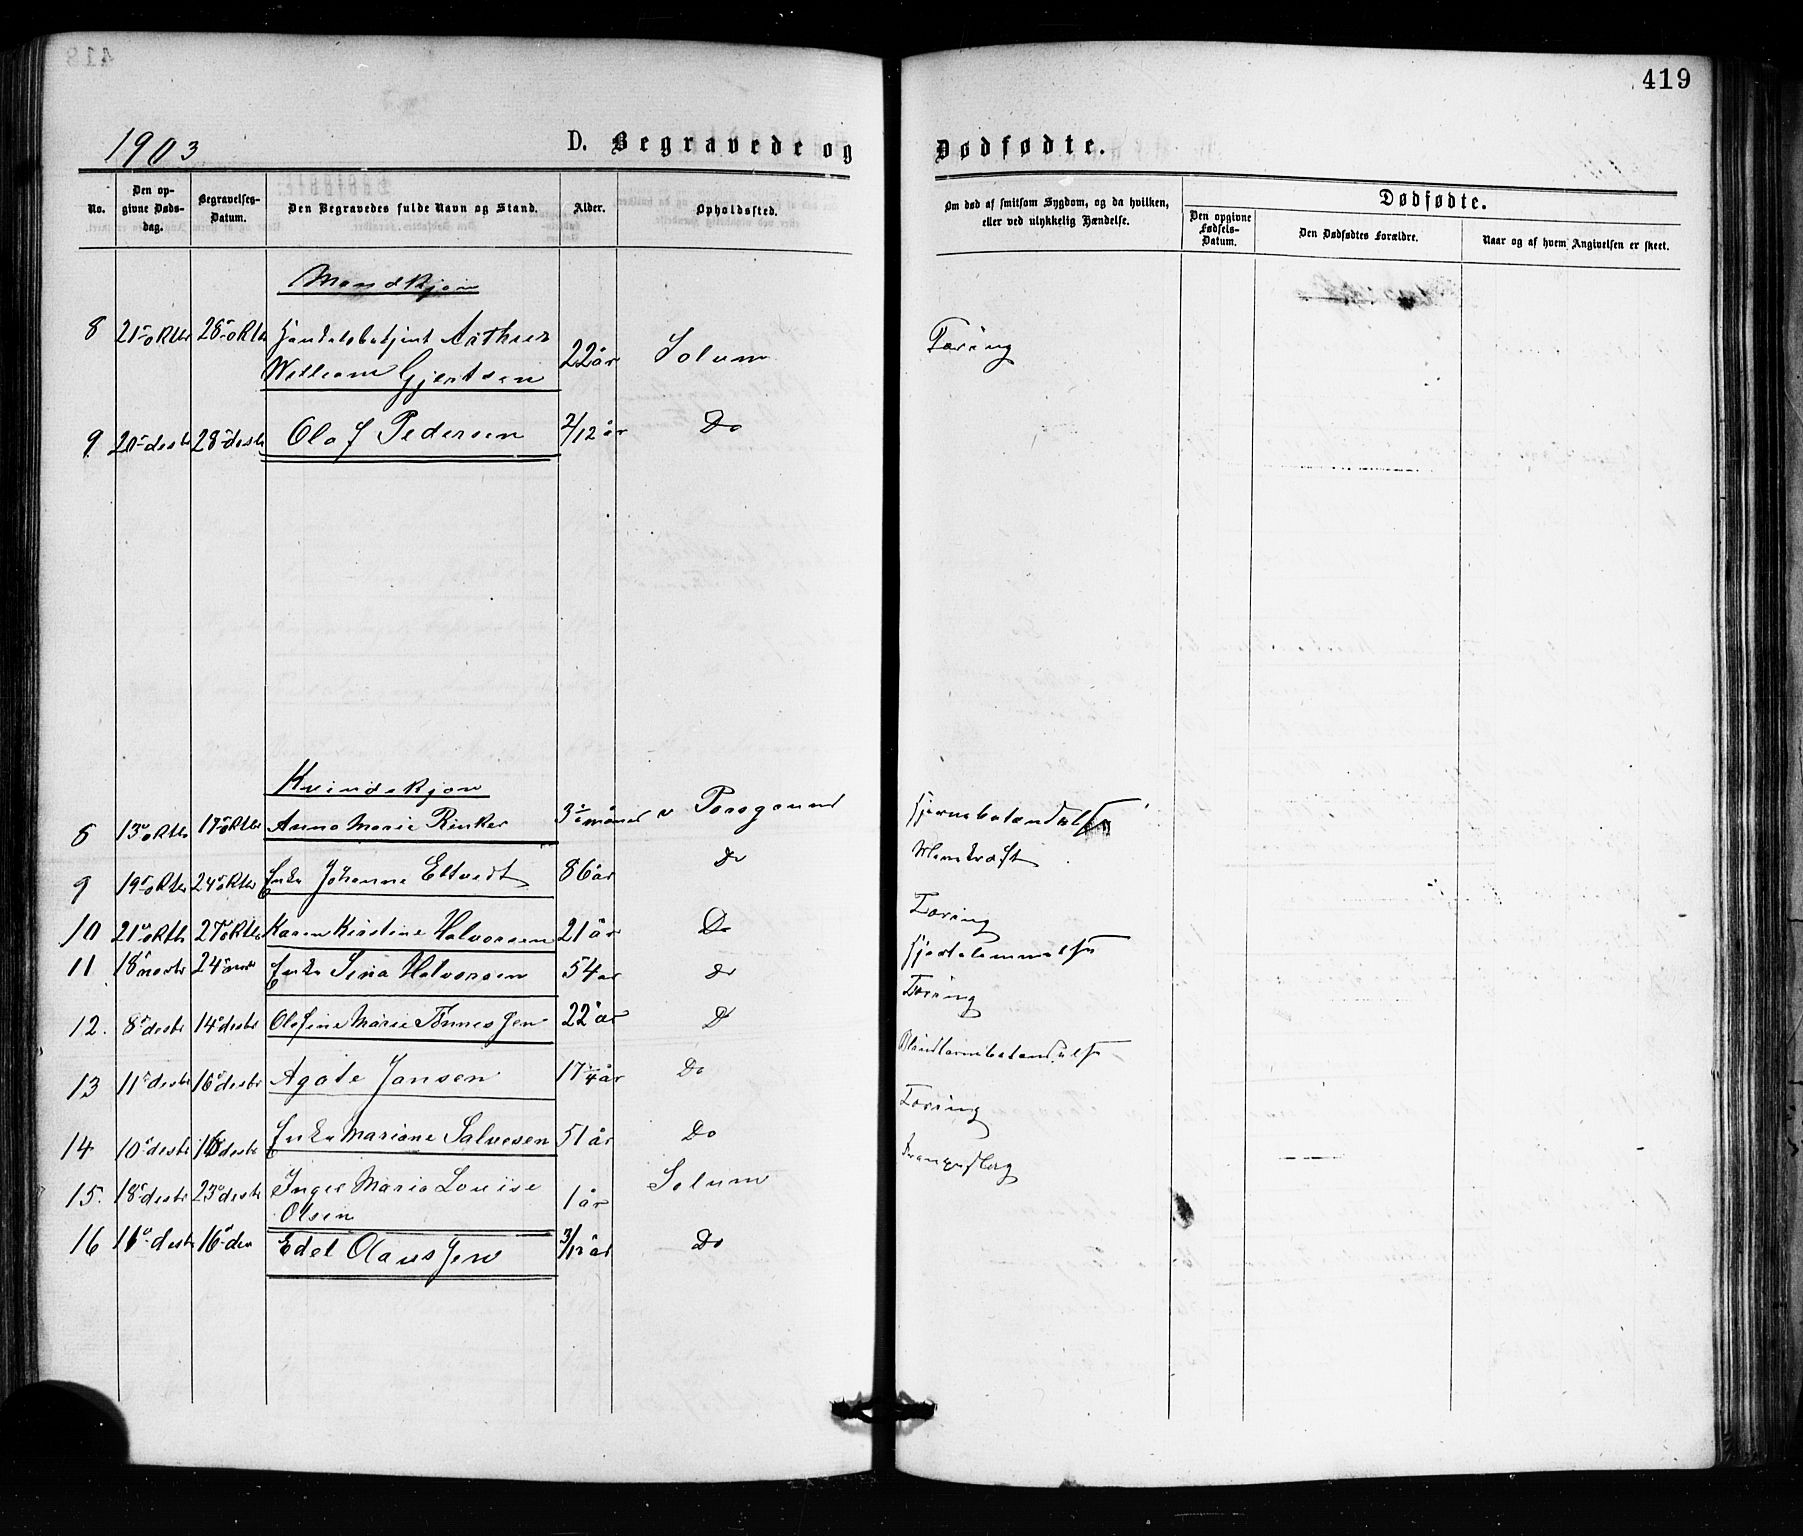 419
1903
D. Begravede og Dødfødte.
No.
Den opgivne Døds-
dag.
Begravelses-
Datum.
Den Begravedes fulde Navn og Stand.
Alder.
Opholdssted.
Om død af smitsom Sygdom, og da hvilken,
eller ved ulykkelig Hændelse.
Dødfødte.
Den opgivne
Fødsels-
Datum.
Den Dødfødtes Forældre.
Naar og af hvem Angivelsen er skeet.
Mandkjøn
8 21 oktbr 28 oktbr Handelsbetjent Arthur
William Gjertsen 22 år Solum Tæring
9 20 desbr 28 desbr Olaf Pedersen 2/12 år Do
Kvindekjøn
8 13 oktbr 17 oktbr Anna Marie Rinker 3½ måned Porsgrund Hjernebetændelse
9 19 oktbr 24 oktbr Enke Johanne Eltvedt 86 år Do
10 21 oktb 27 oktbr Karen Kirstine Halvorsen 21 år Do Tæring
11 18 novbr 24 novbr Enke Sina Halvorsen 54 år Do Hjertelammelse
12. 8 desbr 14 desbr Olefine Marie Tønnessen 22 år D Tæring
13 11 desbr 16 desbr Agate Jansen 17 ¼ år Do Blindtarmbetændelse
14 10 desbr 16 desbr Enke Mariane Salvesen 51 år Do Tæring
15. 18 desbr 23 desbr Inger Marie Louise
Olsen 1 år Solum
16 11 desbr 16 des Edel Olaussen 3/12 år Do